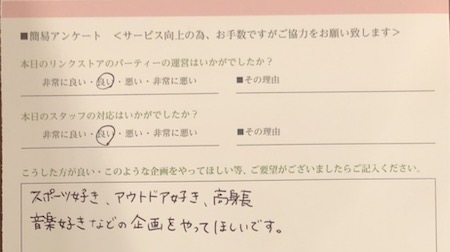 ■簡易アンケート ＜サービス向上の為、お手数ですがご協力をお願い致します＞
本日のリンクストアのパーティーの運営はいかがでしたか？
非常に良い・良い・悪い・非常に悪い ■その理由
本日のスタッフの対応はいかがでしたか？
非常に良い・良い・悪い・非常に悪い ■その理由
こうした方が良い・このような企画をやってほしい等、ご要望がございましたらご記入ください。
スポーツ好き、アウトドア好き、高身長
音楽好きなどの企画をやってほしいです。